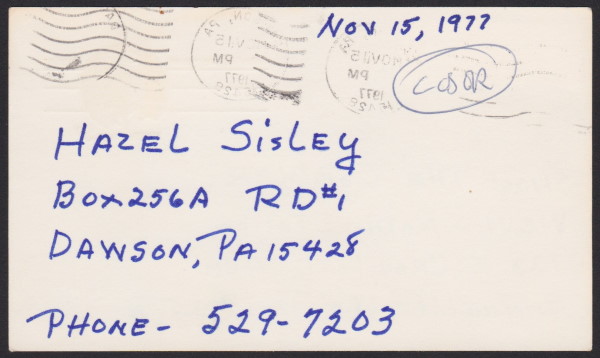 Nov 15, 1977
PM
1977
NOV 15
PM
1977
COLOR
HAZEL SISLEY
BOX 256A RD#1
DAWSON, PA 15428
PHONE - 529-7203